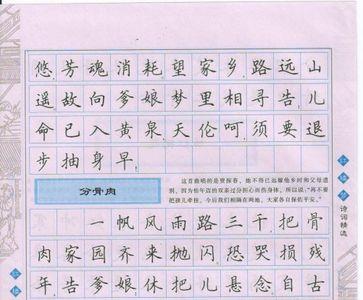 悠芳魂消耗望家乡路远山
遥故向爹娘梦里相寻告儿
命已入黄泉天伦呵须要退
步抽身早
分骨肉
这首曲唱的是贾探春。她不得已远嫁他乡时和父母道
别,因为怕年迈的双亲过分担心而伤身体,所以说:“再不要
把孩儿牵挂,今后我们相隔两地,大家各自保佑平安。”
一帆风雨路三千把骨
肉家园齐来抛闪恐哭损残
年告爹娘休把儿悬念自古
红楼梦
诗词精选